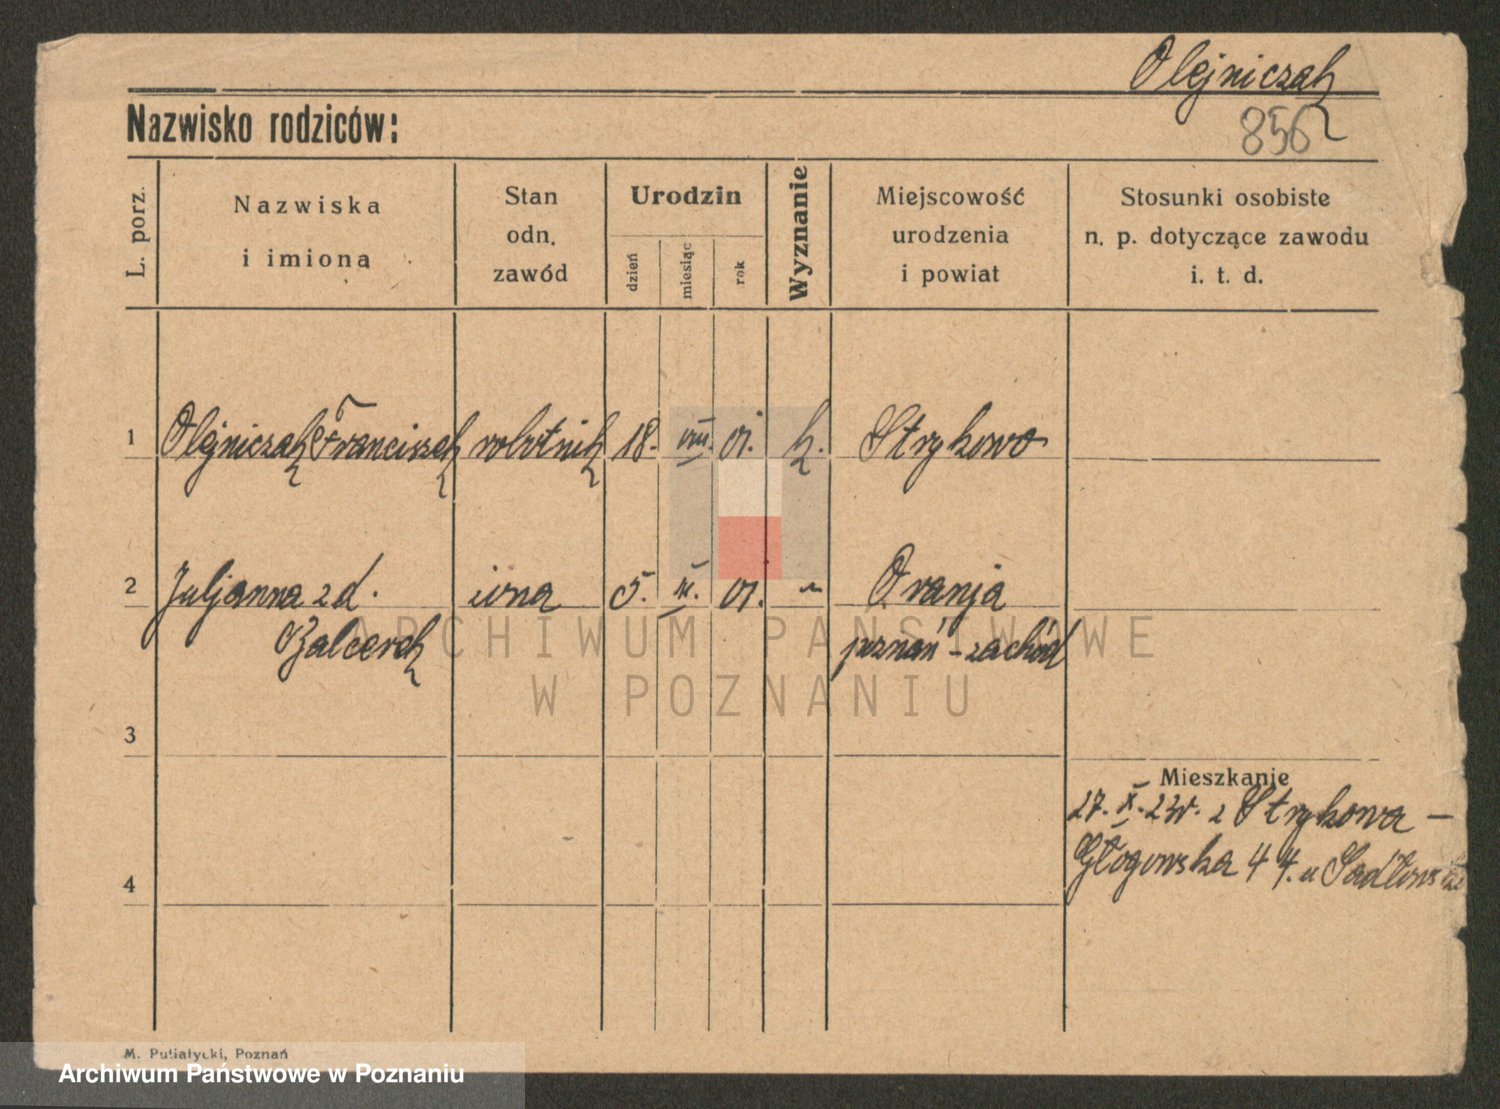 Olejniczak
856
Nazwisko rodziców:
L. porz.
Nazwiska
i imiona
Stan
odn.
zawód
Urodzin
dzień
miesiąc
rok
Wyznanie
Miejscowość
urodzenia
i powiat
Stosunki osobiste
n. p. dotyczące zawodu
i. t. d.
1 Olejniczak Franciszek robotnik 18. VIII. 01. k. Strykowo
2 Juljanna zd. żona 5. 01. "
Balcerek poznań-zachód
3
Mieszkanie
27. X. 23r. z Strykowa –
Głogowska 44. u
4
ARCHIWUM PAŃSTWOWE
W POZNANIU
M. Putiatycki, Poznań
Archiwum Państwowe w Poznaniu